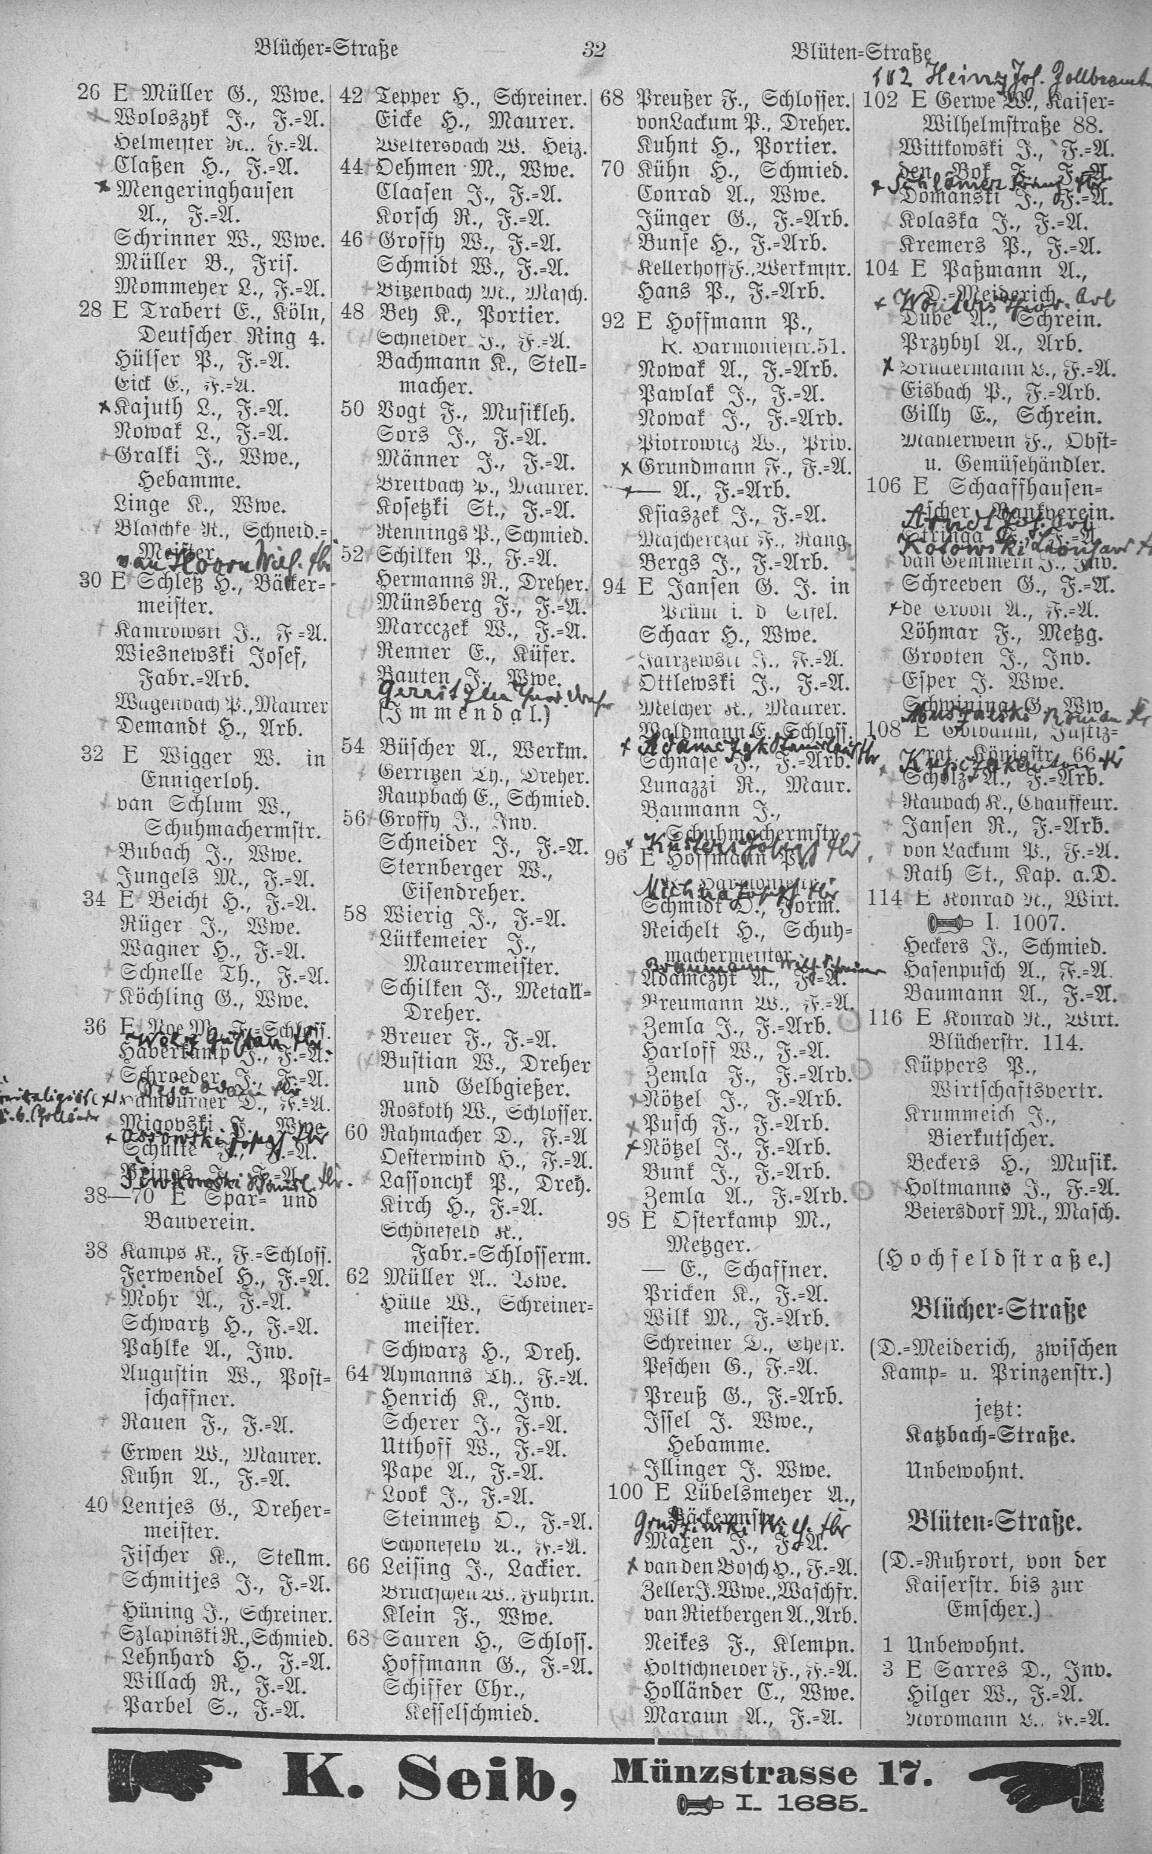 Blücher-Straße
32
Blüten-Straße
26 E Müller G., Wwe.
Woloszyk J., F.-A.
Helmeister A., F.-A.
Claßen H., F.-A.
Mengeringhausen
A., F.-A.
Schrinner W., Wwe.
Müller B., Fris.
Mommeyer L., F.-A.
28 E Trabert E., Köln,
Deutscher Ring 4.
Hülser P., F.-A.
Eick E., F.-A.
Kajuth L., F.-A.
Nowak L., F.-A.
Gralki J., Wwe.,
Hebamme.
Linge K., Wwe.
Blaschke R., Schneid.-
Meister.
van Hoorn Wilh.
30 E Schleß H., Bäcker-
meister.
Kamrowski J., F.-A.
Wiesnewski Josef,
Fabr.-Arb.
Wagenbach P., Maurer
Demandt H., Arb.
32 E Wigger W. in
Ennigerloh.
van Schlum W.,
Schuhmachermstr.
Bubach J., Wwe.
Jungels M., F.-A.
34 E Beicht H., F.-A.
Rüger J., Wwe.
Wagner H., F.-A.
Schnelle Th., F.-A.
Köchling G., Wwe.
36 E Noe M., F.-Schloss.
Haverkamp J., F.-A.
Schroeder J., F.-A.
Hamburger D., F.-A.
Migovski F., Wwe.
Schulte F., F.-A.
38—70 E Spar- und
Bauverein.
38 Kamps K., F.-Schloss.
Ferwendel H., F.-A.
Mohr A., F.-A.
Schwartz H., F.-A.
Pahlke A., Inv.
Augustin W., Post-
schaffner.
Rauen F., F.-A.
Erwen W., Maurer.
Kuhn A., F.-A.
40 Lentjes G., Dreher-
meister.
Fischer K., Stellm.
Schmitjes J., F.-A.
Hüning J., Schreiner.
Szlapinski R., Schmied.
Lehnhard H., F.-A.
Willach R., F.-A.
Parbel S., F.-A.
42 Tepper H., Schreiner.
Eicke H., Maurer.
Weltersbach W. Heiz.
44 Oehmen M., Wwe.
Claasen J., F.-A.
Korsch R., F.-A.
46 Groffy W., F.-A.
Schmidt W., F.-A.
Bitzenbach M., Masch.
48 Bey K., Portier.
Schneider J., F.-A.
Bachmann K., Stell-
macher.
50 Vogt F., Musikleh.
Sors J., F.-A.
Männer J., F.-A.
Breitbach P., Maurer.
Kosetzki St., F.-A.
Rennings P., Schmied.
52 Schilken P., F.-A.
Hermanns R., Dreher.
Münsberg F., F.-A.
Marcczek W., F.-A.
Renner E., Küfer.
Bauten J., Wwe.
(Immendal.)
54 Büscher A., Werkm.
Gerritzen Th., Dreher.
Raupbach E., Schmied.
56 Groffy J., Inv.
Schneider J., F.-A.
Sternberger W.,
Eisendreher.
58 Wierig J., F.-A.
Lütkemeier J.,
Maurermeister.
Schilken J., Metall-
Dreher.
Breuer F., F.-A.
Bustian W., Dreher
und Gelbgießer.
Roskoth W., Schlosser.
60 Rahmacher D., F.-A
Oesterwind H., F.-A.
Lassonchk P., Dreh.
Kirch H., F.-A.
Schönefeld K.,
Fabr.-Schlosserm.
62 Müller A., Wwe.
Hülle W., Schreiner-
meister.
Schwarz H., Dreh.
64 Aymanns Th., F.-A.
Henrich K., Inv.
Scherer J., F.-A.
Utthoff W., F.-A.
Pape A., F.-A.
Look J., F.-A.
Steinmetz O., F.-A.
Schönefeld A., F.-A.
66 Leising J., Lackier.
Bruckschen W., Fuhrm.
Klein F., Wwe.
68 Sauren H., Schloss.
Hoffmann G., F.-A.
Schiffer Chr.,
Kesselschmied.
68 Preußer F., Schlosser.
von Lackum P., Dreher.
Kuhnt H., Portier.
70 Kühn H., Schmied.
Conrad A., Wwe.
Jünger G., F.-Arb.
Bunse H., F.-Arb.
Kellerhoff F., Werkmstr.
Hans P., F.-Arb.
92 E Hoffmann P.,
K. Harmoniestr. 51.
Nowak A., F.-Arb.
Pawlak J., F.-A.
Nowak J., F.-Arb.
Piotrowicz W., Priv.
Grundmann F., F.-A.
— A., F.-Arb.
Ksiaszek J., F.-A.
Mascherczak F., Rang.
Bergs J., F.-Arb.
94 E Jansen G. J. in
Prüm i. d Eifel.
Schaar H., Wwe.
Jairzewski J., F.-A.
Ottlewski J., F.-A.
Melcher K., Maurer.
Waldmann E., Schloss.
Adamczyk Stanislaus
Schnase J., F.-Arb.
Lunazzi R., Maur.
Baumann J.,
Schuhmachermstr.
Küsters Joseph
96 E Hoffmann P.,
Schmidt O., Form.
Reichelt H., Schuh-
machermeister.
Adamczyk A., F.-A.
Breumann W., F.-A.
Zemla J., F.-Arb.
Harloff W., F.-A.
Zemla F., F.-Arb.
Nötzel J., F.-Arb.
Pusch F., F.-Arb.
Nötzel J., F.-Arb.
Bunk J., F.-Arb.
Zemla A., F.-Arb.
98 E Osterkamp M.,
Metzger.
— E., Schaffner.
Pricken K., F.-A.
Wilk M., F.-Arb.
Schreiner D., Ehefr.
Peschen G., F.-A.
Preuß G., F.-Arb.
Issel J. Wwe.,
Hebamme.
Illinger J. Wwe.
100 E Lübelsmeyer A.,
Bäckermstr.
Grudzinski Wilh.
Maxen J., F.-A.
van den Bosch H., F.-A.
Zeller J. Wwe., Waschfr.
van Rietbergen A., Arb.
Neikes F., Klempn.
Holtschneider F., F.-A.
Holländer C., Wwe.
Maraun A., F.-A.
102 Heinz Jos. Zollbeamt
102 E Gerwe W., Kaiser-
Wilhelmstraße 88.
Wittkowski J., F.-A.
den Bok J., F.-A.
Domanski J., F.-A.
Kolaska J., F.-A.
Kremers P., F.-A.
104 E Paßmann A.,
D.-Meiderich.
Dübe A., Schrein.
Przybyl A., Arb.
Brüdermann L., F.-A.
Eisbach P., F.-Arb.
Gilly E., Schrein.
Mahlerwein F., Obst-
u. Gemüsehändler.
106 E Schaaffhausen-
scher Bankverein.
Arndt Jos. Arb
van Gemmern J., Inv.
Schreeven G., F.-A.
de Croon A., F.-A.
Löhmar F., Metzg.
Grooten J., Inv.
Esper J. Wwe.
108 E Goldbaum, Justiz-
rat, Königstr. 66.
Scholz A., F.-Arb.
Raupach K., Chauffeur.
Jansen R., F.-Arb.
von Lackum P., F.-A.
Rath St., Kap. a.D.
114 E Konrad A., Wirt.
I. 1007.
Heckers J., Schmied.
Hasenpusch A., F.-A.
Baumann A., F.-A.
116 E Konrad A., Wirt.
Blücherstr. 114.
Küppers P.,
Wirtschaftsvertr.
Krummeich J.,
Bierkutscher.
Beckers H., Musik.
Holtmanns J., F.-A.
Beiersdorf M., Masch.
(Hochfeldstraße.)
Blücher-Straße
(D.-Meiderich, zwischen
Kamp- u. Prinzenstr.)
jetzt:
Katzbach-Straße.
Unbewohnt.
Blüten-Straße.
(D.-Ruhrort, von der
Kaiserstr. bis zur
Emscher.)
1 Unbewohnt.
3 E Sarres D., Inv.
Hilger W., F.-A.
Nordmann L., F.-A.
K. Seib, Münzstrasse 17.
I. 1685.